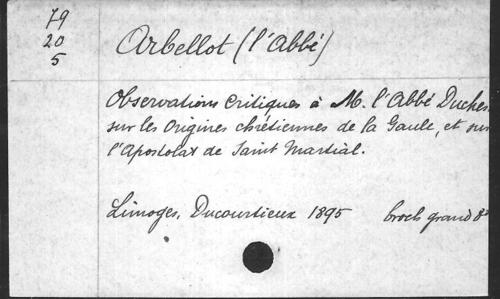 79
20
5
Arbellot (l'Abbé)
Observations critiques à M. l'Abbé Duches
sur les Origines chrétiennes de la Gaule, et sur
l'Apostolat de Saint Martial.
Limoges, Ducourtieux 1895 broch grand 8°